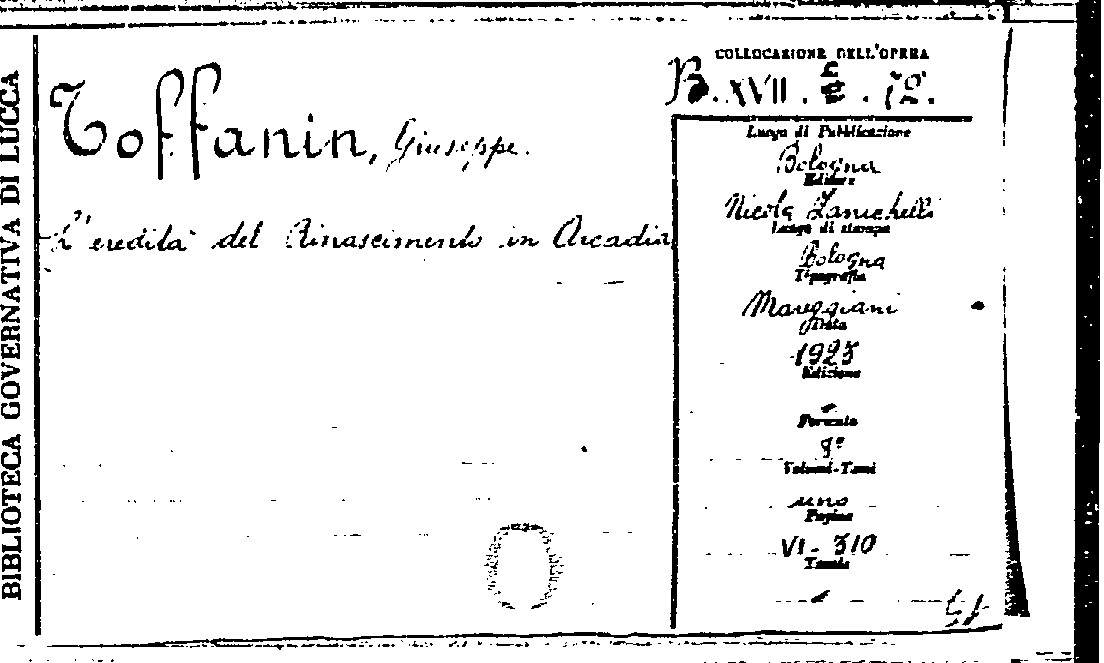 BIBLIOTECA GOVERNATIVA DI LUCCA
Toffanin, Giuseppe.
L'eredità del Rinascimento in Arcadia
COLLOCAZIONE DELL'OPERA
B. XVII. . 12.
Luogo di Pubblicazione
Bologna
Editore
Nicola Zanichelli
Luogo di stampa
Bologna
Tipografia
Mareggiani
Data
1923
Edizione
Formato
8º
Volumi-Tomi
uno
Pagine
VI - 310
Tavole